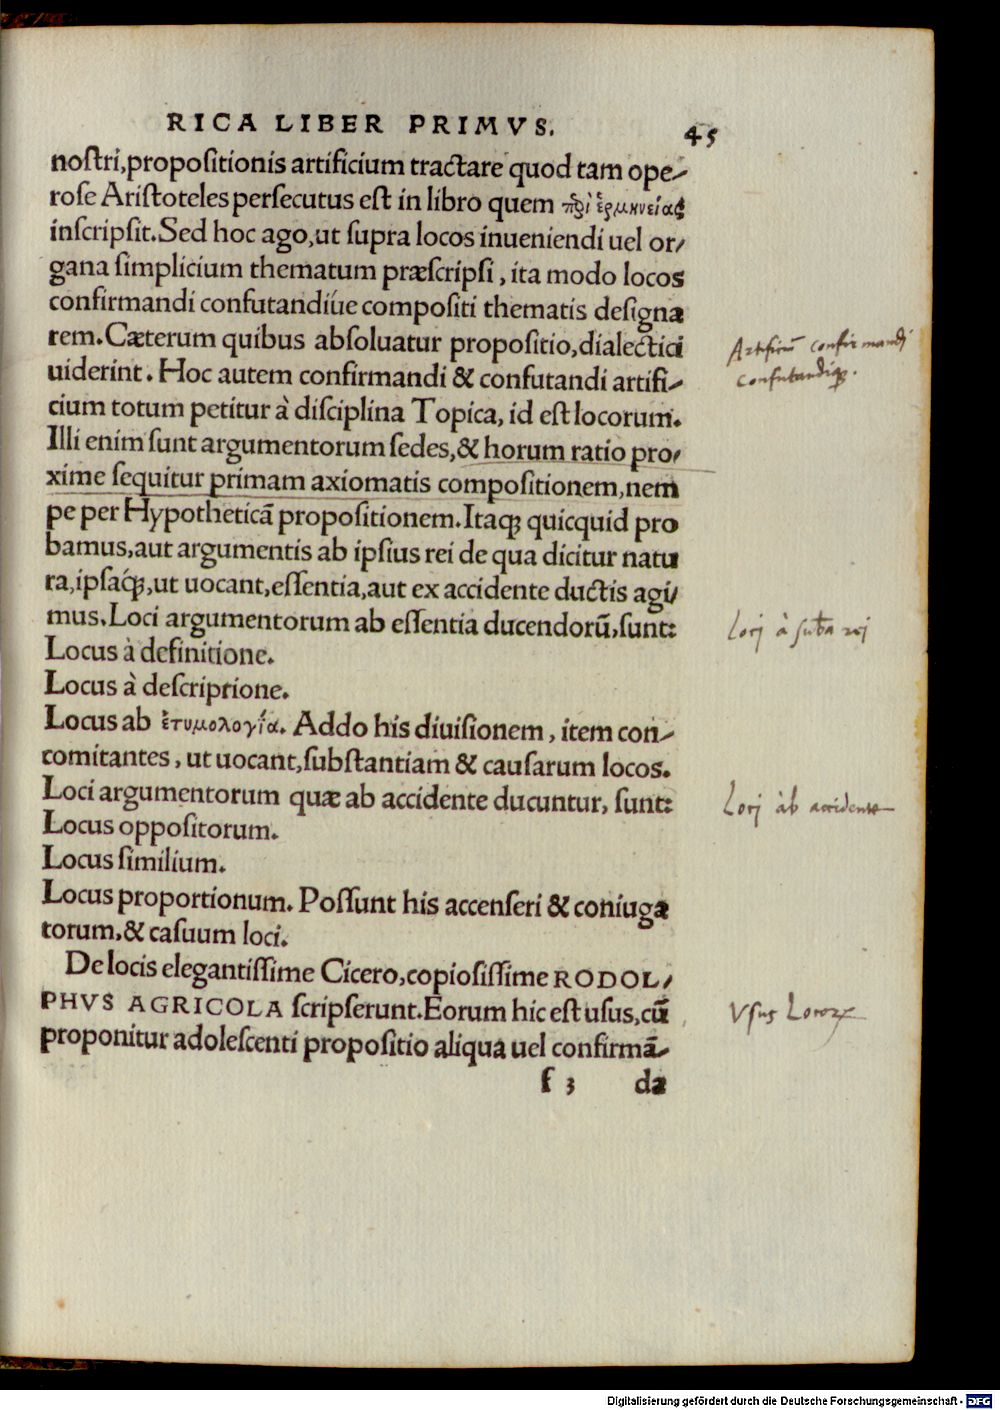 RICA LIBER PRIMVS. 45
nostri,propositionis artificium tractare quod tam ope-
rose Aristoteles persecutus est in libro quem περὶ ἑρμηνείας
inscripsit.Sed hoc ago,ut supra locos inueniendi uel or-
gana simplicium thematum præscripsi, ita modo locos
confirmandi confutandiúe compositi thematis designa
rem.Cæterum quibus absoluatur propositio,dialectici
uiderint. Hoc autem confirmandi & confutandi artifi-
cium totum petitur à disciplina Topica, id est locorum.
Illi enim sunt argumentorum sedes,& horum ratio pro-
xime sequitur primam axiomatis compositionem,nem
pe per Hypotheticã propositionem.Itaq; quicquid pro
bamus,aut argumentis ab ipsius rei de qua dicitur natu
ra,ipsáq;,ut uocant,essentia,aut ex accidente ductis agi-
mus.Loci argumentorum ab essentia ducendorũ,sunt:
Locus à definitione.
Locus à descriptione.
Locus ab ἐτυμολογίᾳ. Addo his diuisionem, item con-
comitantes, ut uocant,substantiam & causarum locos.
Loci argumentorum quæ ab accidente ducuntur, sunt:
Locus oppositorum.
Locus similium.
Locus proportionum. Possunt his accenseri & coniuga
torum,& casuum loci.
De locis elegantissime Cicero,copiosissime RODOL-
PHVS AGRICOLA scripserunt.Eorum hic est usus,cũ
proponitur adolescenti propositio aliqua uel confirmã-
f 3 da
Artificiũ confirmandj
confutandiq;.
Locj à subta rej
Locj àb accidente
Vsus Locorꝝ
Digitalisierung gefördert durch die Deutsche Forschungsgemeinschaft - DFG